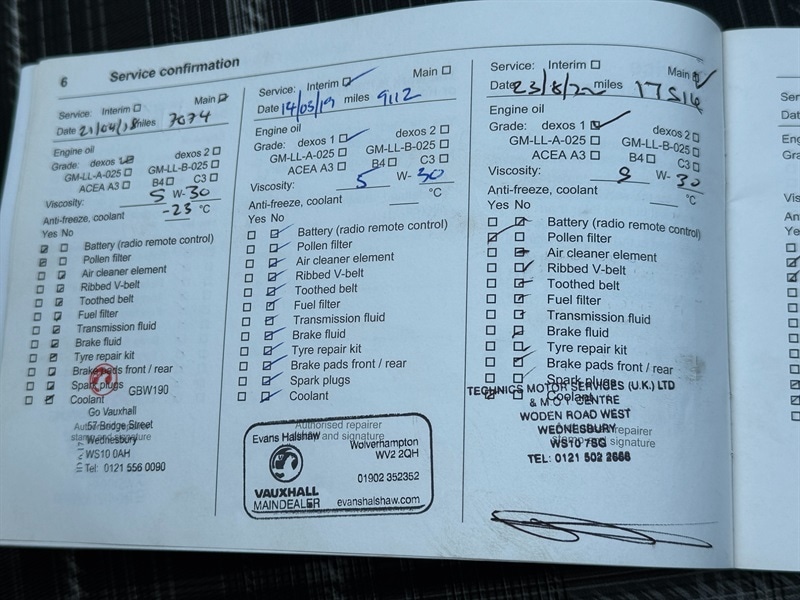 6 Service confirmation
Service: Interim
Main
Date 21/04/18 miles 7074
Engine oil
Grade: dexos 1 dexos 2
GM-LL-A-025 GM-LL-B-025
ACEA A3 B4 C3
Viscosity: 5 W-30
Anti-freeze, coolant -23 °C
Yes No
Battery (radio remote control)
Pollen filter
Air cleaner element
Ribbed V-belt
Toothed belt
Fuel filter
Transmission fluid
Brake fluid
Tyre repair kit
Brake pads front / rear
Spark plugs
GBW190
Coolant
Go Vauxhall
57 Bridge Street
Authorised repairer
Wednesbury
stamp and signature
WS10 0AH
Tel: 0121 556 0090
Service: Interim Main
Date 14/05/19 miles 9112
Engine oil
Grade: dexos 1 dexos 2
GM-LL-A-025 GM-LL-B-025
ACEA A3 B4 C3
Viscosity: 5 W- 30
Anti-freeze, coolant °C
Yes No
Battery (radio remote control)
Pollen filter
Air cleaner element
Ribbed V-belt
Toothed belt
Fuel filter
Transmission fluid
Brake fluid
Tyre repair kit
Brake pads front / rear
Spark plugs
Coolant
Authorised repairer
stamp and signature
Evans Halshaw
Wolverhampton
WV2 2QH
01902 352352
VAUXHALL
MAINDEALER evanshalshaw.com
Service: Interim
Main
Date 23/8/22 miles 17516
Engine oil
Grade: dexos 1 dexos 2
GM-LL-A-025 GM-LL-B-025
ACEA A3 B4 C3
Viscosity: W- 30
Anti-freeze, coolant °C
Yes No
Battery (radio remote control)
Pollen filter
Air cleaner element
Ribbed V-belt
Toothed belt
Fuel filter
Transmission fluid
Brake fluid
Tyre repair kit
Brake pads front / rear
Spark plugs
Coolant
TECHNICS MOTOR SERVICES (U.K.) LTD
& M O T CENTRE
WODEN ROAD WEST
WEDNESBURY
WS10 7SG
TEL: 0121 502 2666
Authorised repairer
stamp and signature
Ser
Date
Eng
Gra
Vis
Ant
Ye